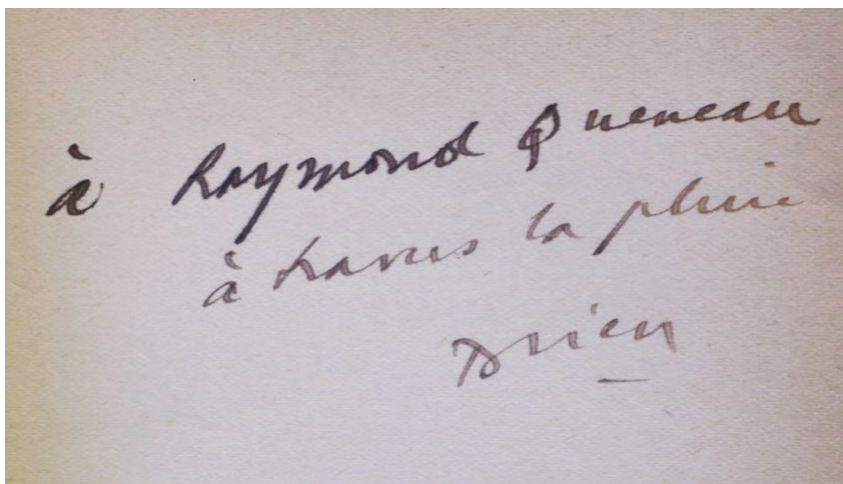 à Raymond Queneau
à travers la pluie
Drieu